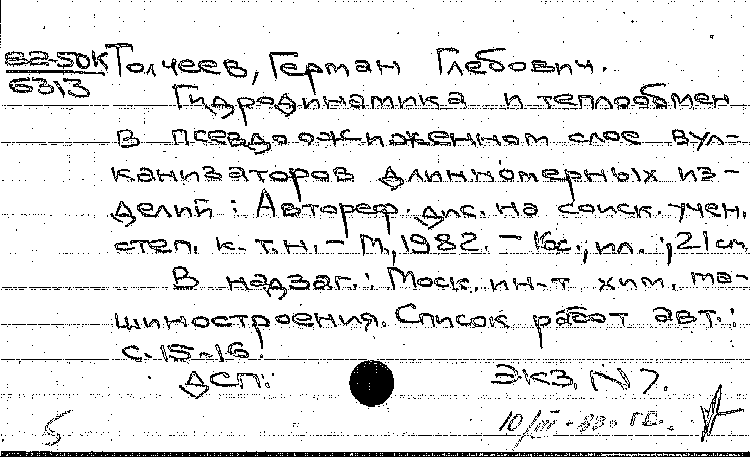 82-50К Толчеев, Герман Глебович.
6313
Гидродинамика и теплообмен
в псевдоожиженном слое вул-
канизаторов длинномерных из-
делий : Автореф. дис. на соиск. учен.
степ. к.т.н. - М., 1982. - 16с., ил. ; 21 см
В надзаг.: Моск. ин-т хим. ма-
шиностроения. Список работ авт.:
с. 15-16.
ДСП. Экз. N 7.
5 10/III-83. г.